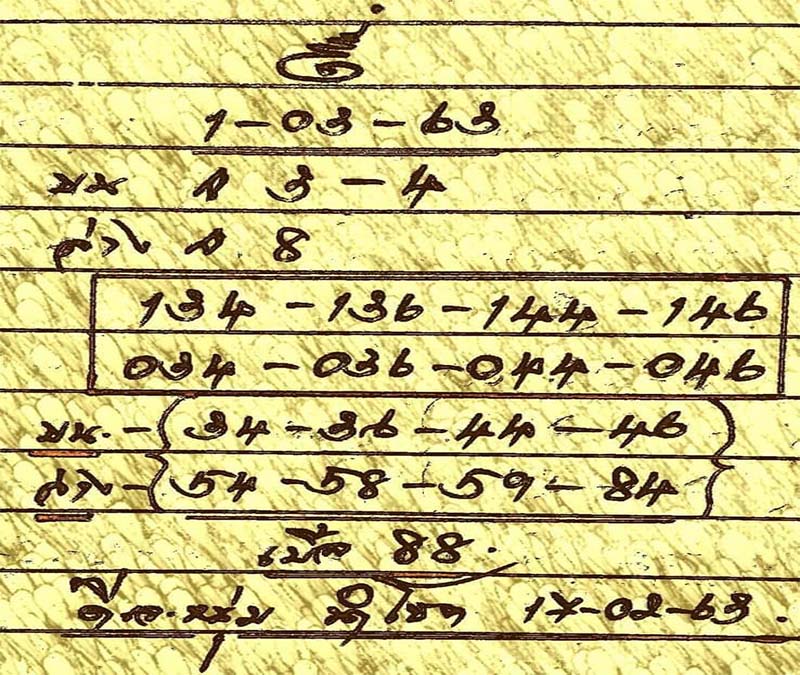 1-03-63
บน ๑ 3-4
ล่าง ๑ 8
134-136-144-146
034-036-044-046
บน.-(34-36-44-46)
ล่าง-{54-58-59-84}
เบิ้ล 88.
นำโชค 17-02-63.